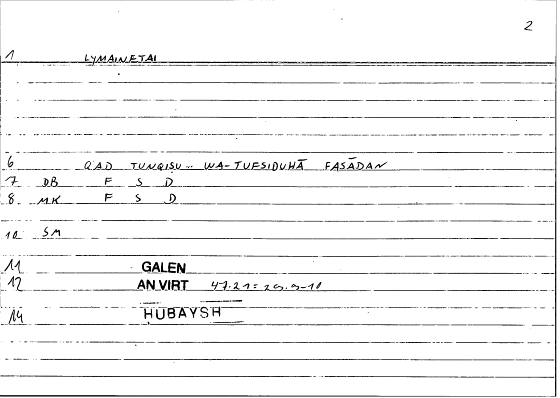 2
1 LYMAINETAI
6 QAD TUNQIṢU... WA-TUFSIDUHĀ FASĀDAN
7 DB F S D
8 MK F S D
10 SM
11 GALEN
12 AN VIRT 47.21 =
14 HUBAYSH